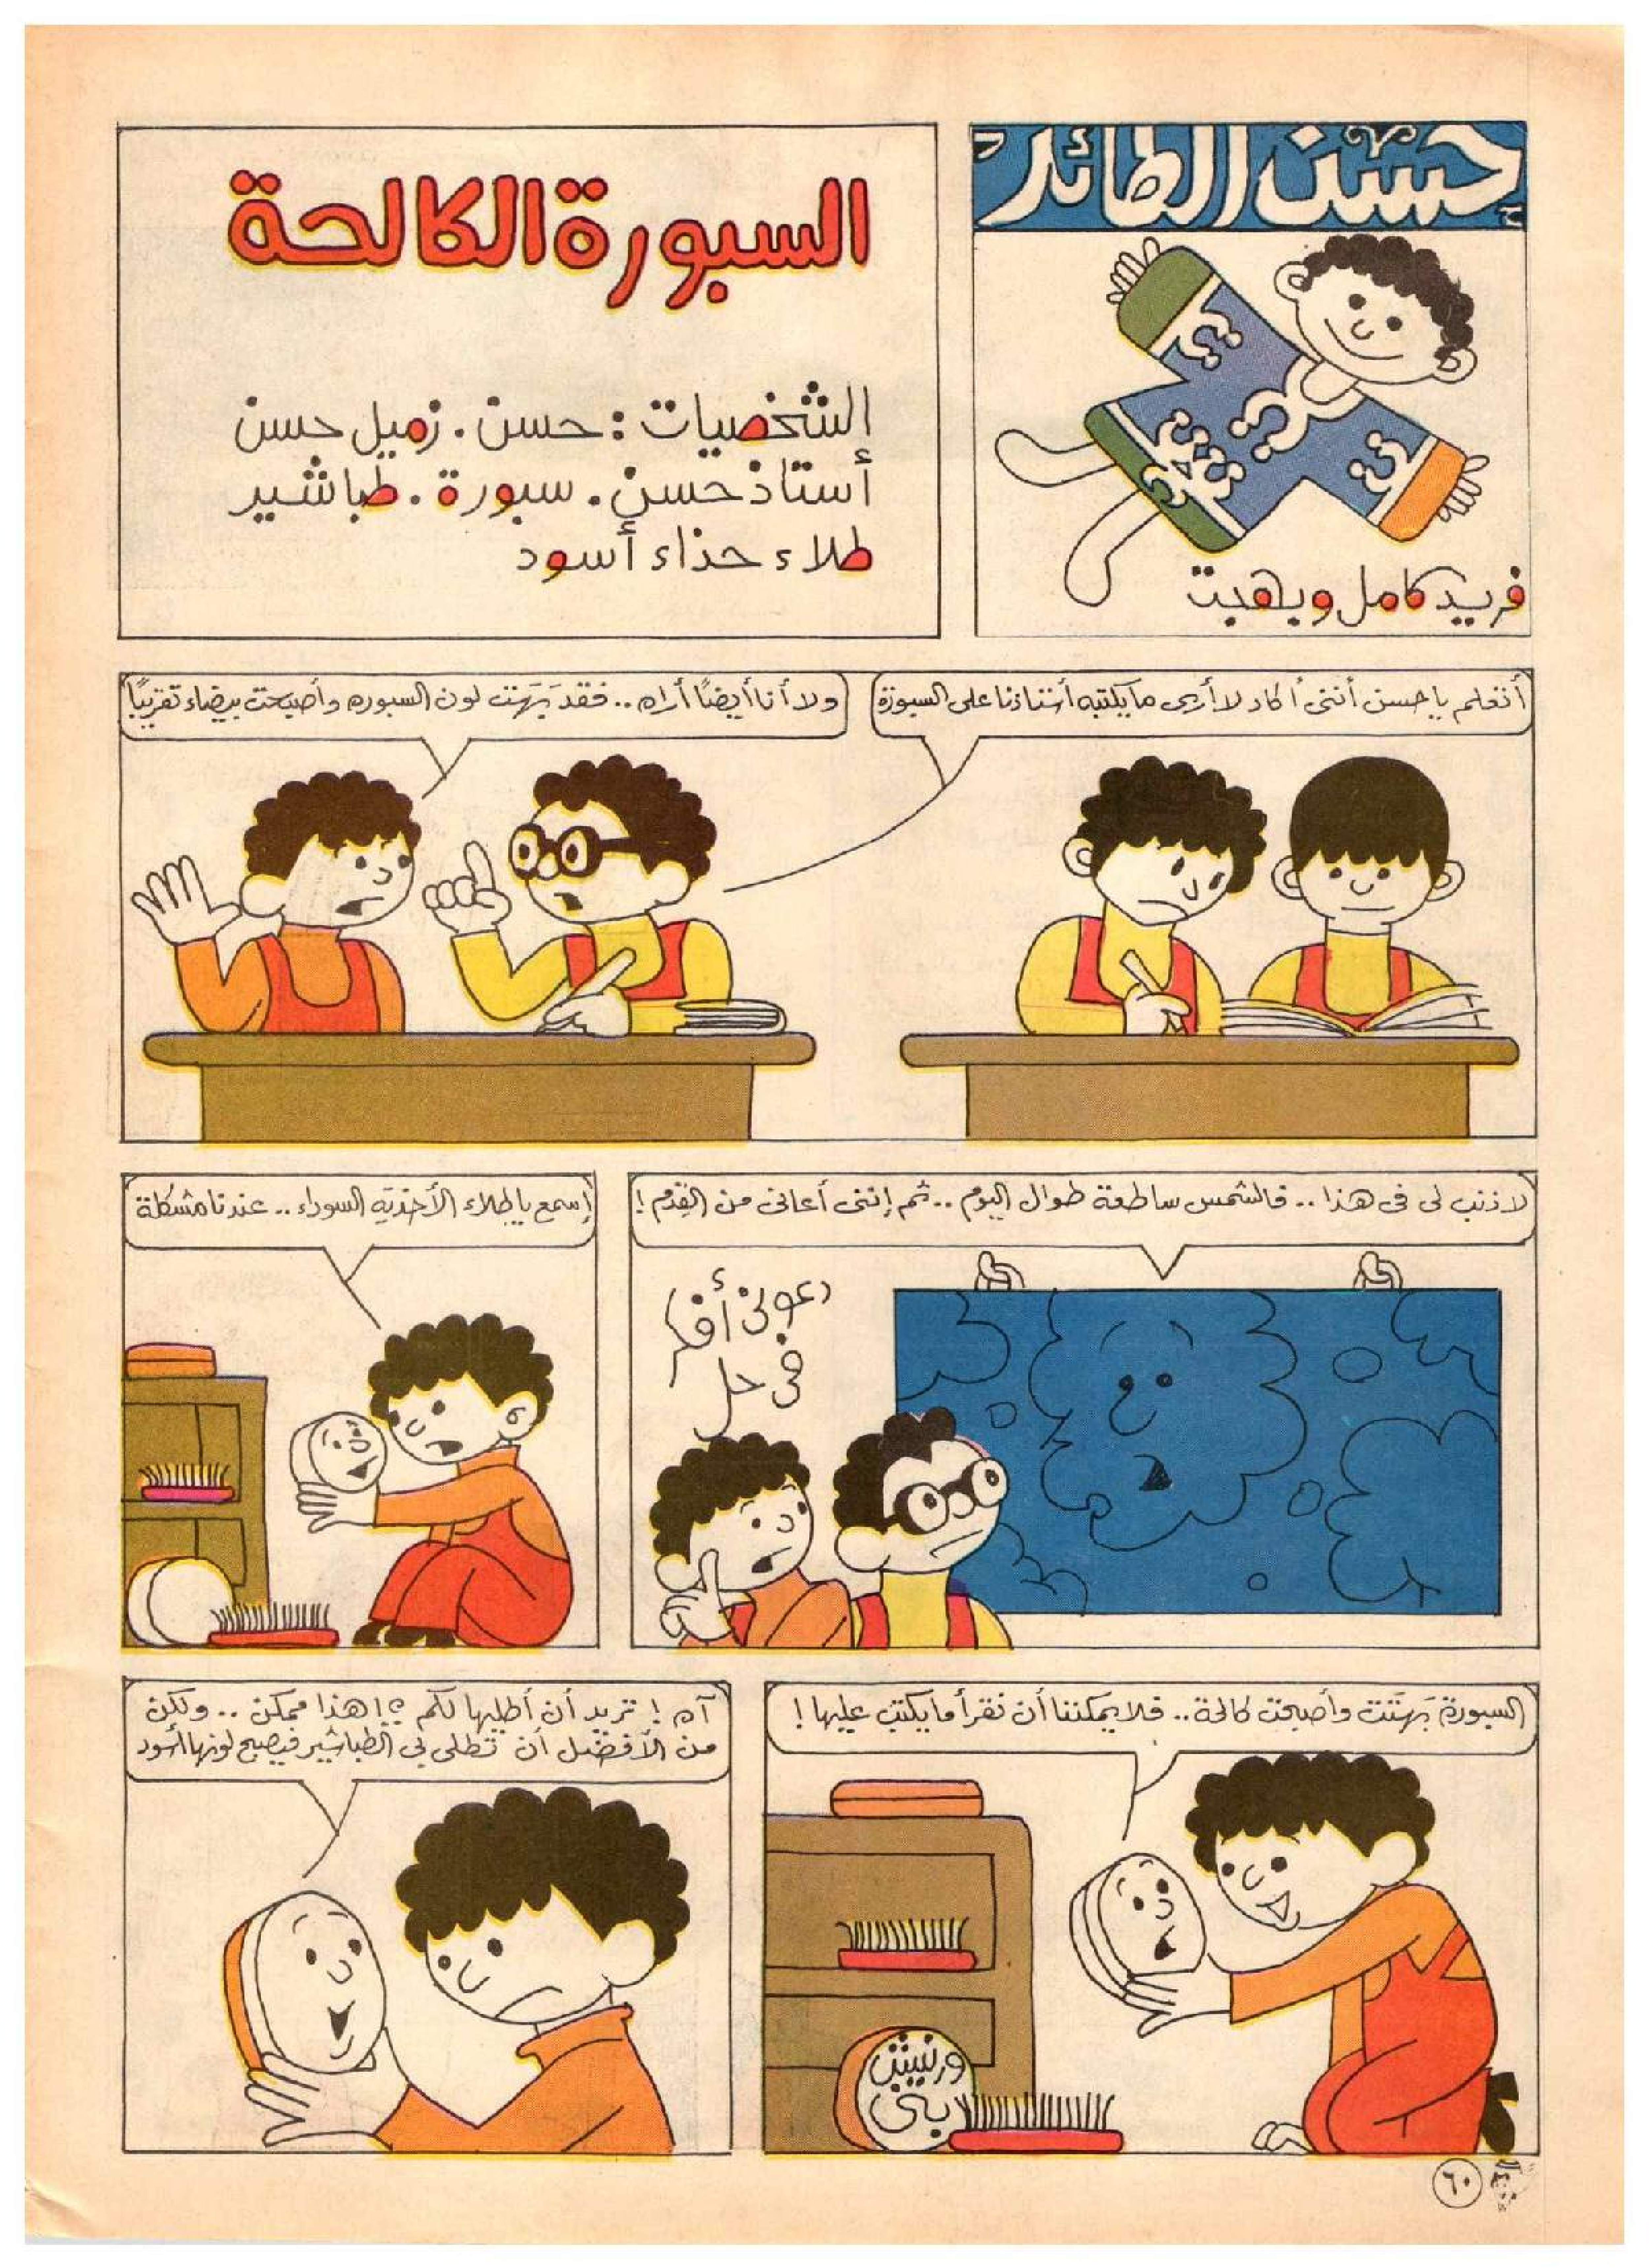 حسن الطائر
فريد كامل وبهجت
السبورة الكالحة
الشخصيات : حسن . زميل حسن
أستاذ حسن . سبورة . طباشير
طلاء حذاء أسود
أتعلم يا حسن أننى أكاد لا أرى ما يكتبه أستاذنا على السبورة
ولا أنا أيضًا أراه .. فقد بَهِتت لون السبوره وأصبحت بيضاء تقريبًا
لا ذنب لى فى هذا .. فالشمس ساطعة طوال اليوم .. ثم إننى أعانى من القِدَم !
دعونى أفكر
فى حل
إسمع يا طلاء الأحذيَه السوداء .. عندنا مشكلة
السبورة بَهتَت وأصبحت كالحة .. فلا يمكننا أن نقرأ ما يكتب عليها !
ورنيش
بنى
آه ! تريد أن أطليها لكم ؟! هذا ممكن .. ولكن
من الأفضل أن تطلى لى الطباشير فيصبح لونها أسود
٦٠